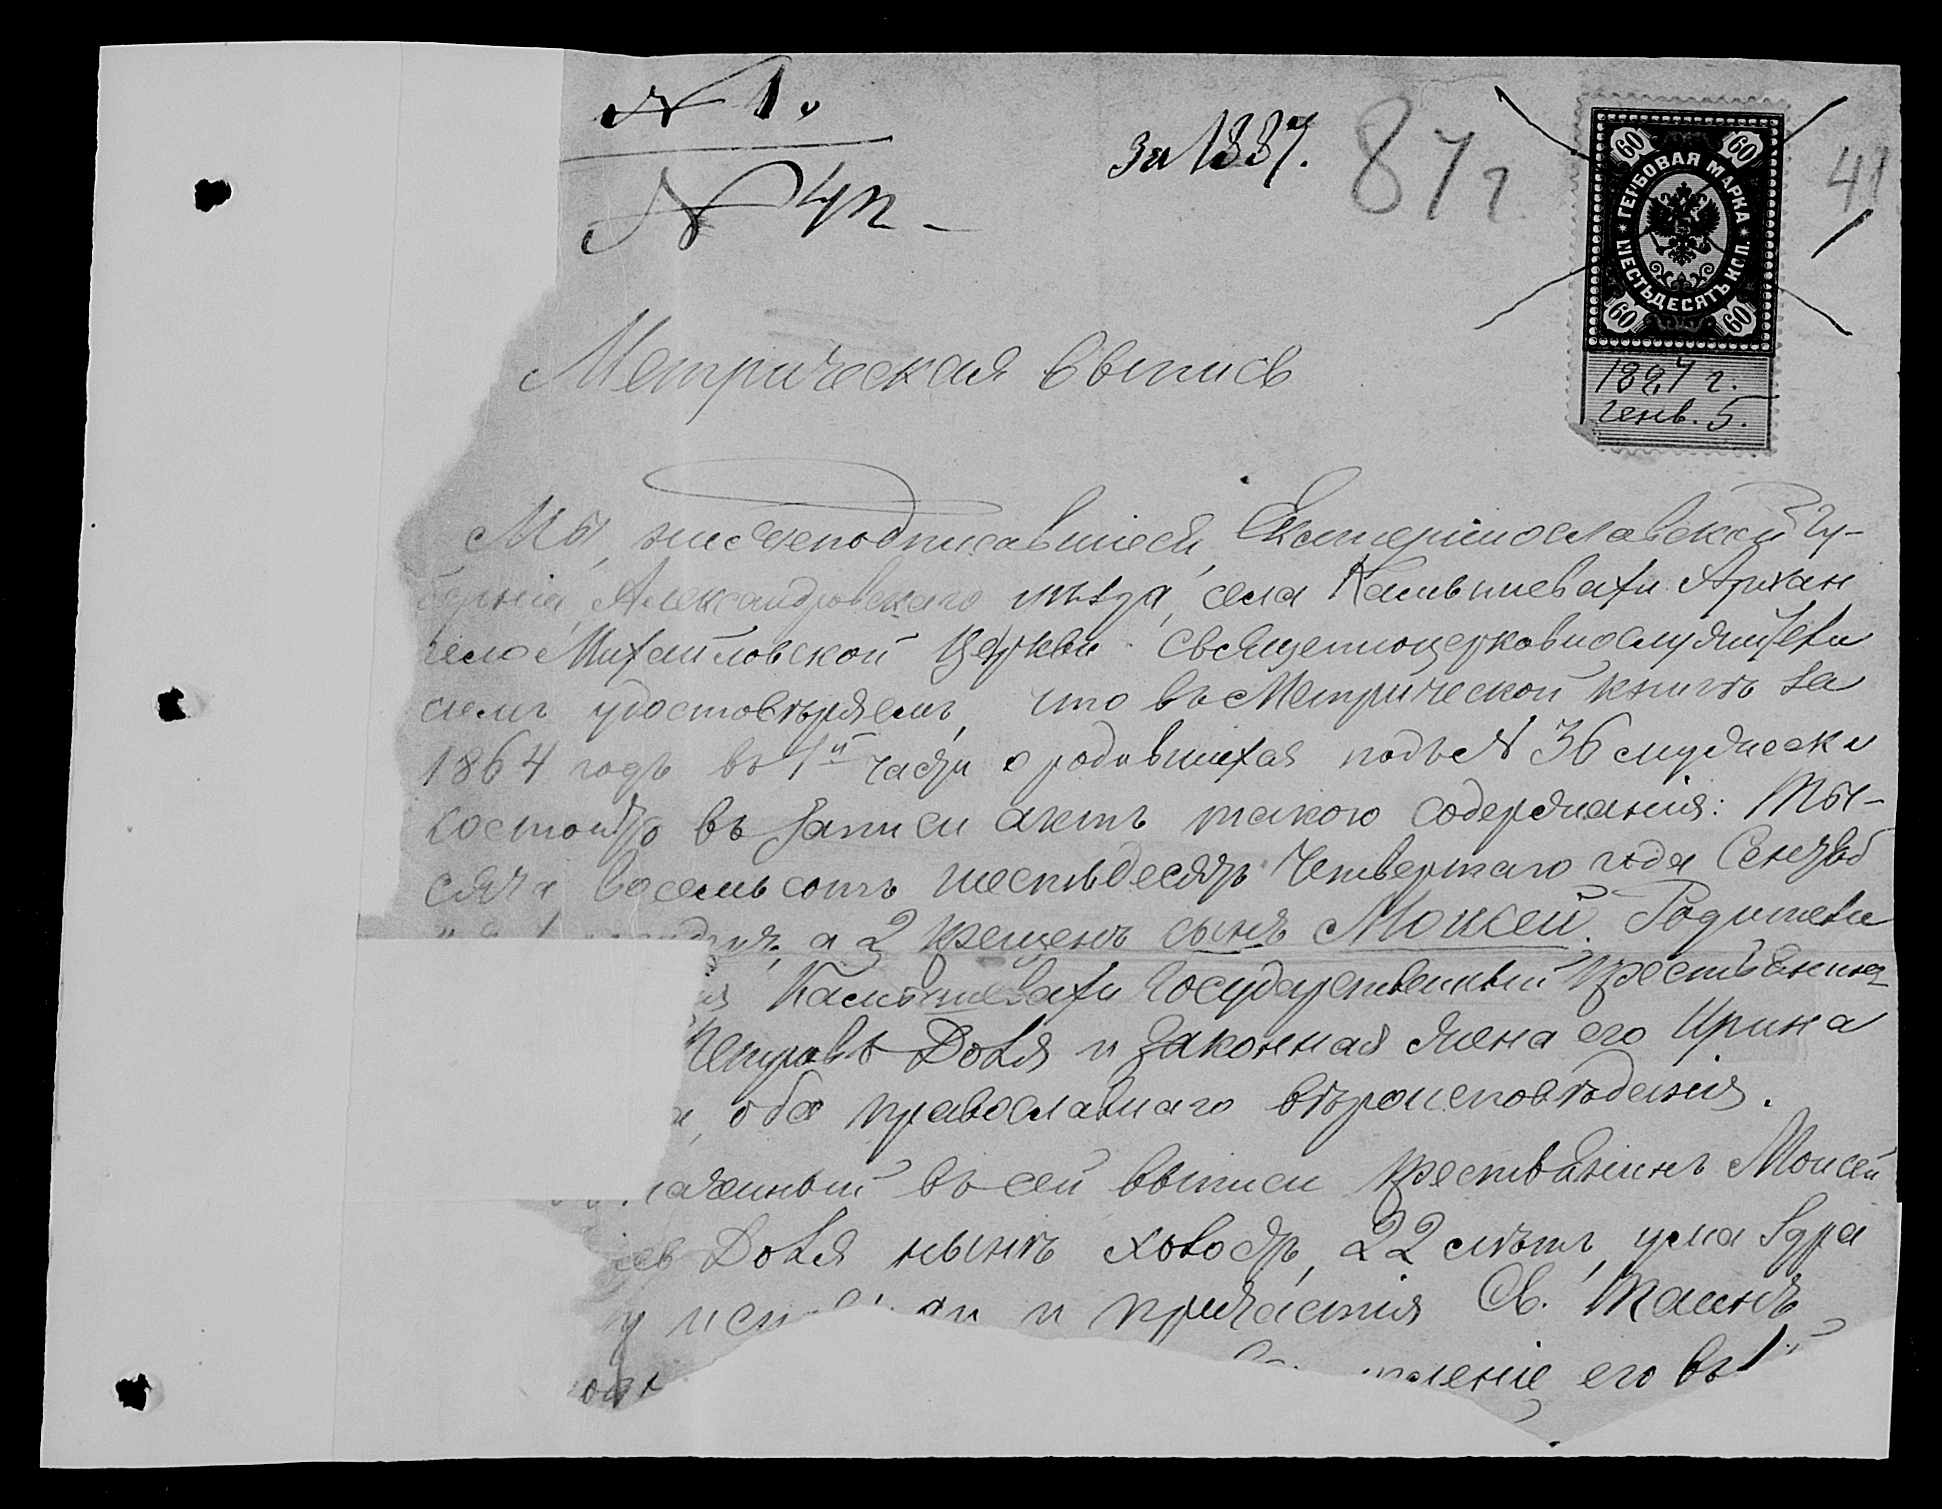 № 1.
за 1887.
87 г
41
№ 42 -
60 60
ГЕРБОВАЯ МАРКА
ШЕСТЬДЕСЯТЪ КОП.
60 60
1887 г.
Генв. 5.
Метрическая выпись
Мы, нижеподписавшіеся, Екатеринославской Гу-
берніи, Александровскаго уѣзда, села Камышевахи Архан
гело Михайловской Церкви священноцерковнослужители
симъ удостовѣряемъ, что въ Метрической книгѣ за
1864 годъ въ 1й части о родившихся подъ № 36 мужеска
состоитъ въ записи актъ такого содержанія: Ты-
сяча восемьсотъ шестьдесятъ Четвертаго года Сентяб
а 2 крещенъ сынъ Моисей. Родители
Камышевахи Государственный крестьянинъ
Петровъ Доля и законная жена его Ирина
а, оба православнаго вѣроисповѣданія.
наченный въ сей выписи крестьянинъ Моисей
ев Доля нынѣ холостъ, 22 лѣтъ, ума здра
у исп и причастія Св. Таинъ
его въ 1й